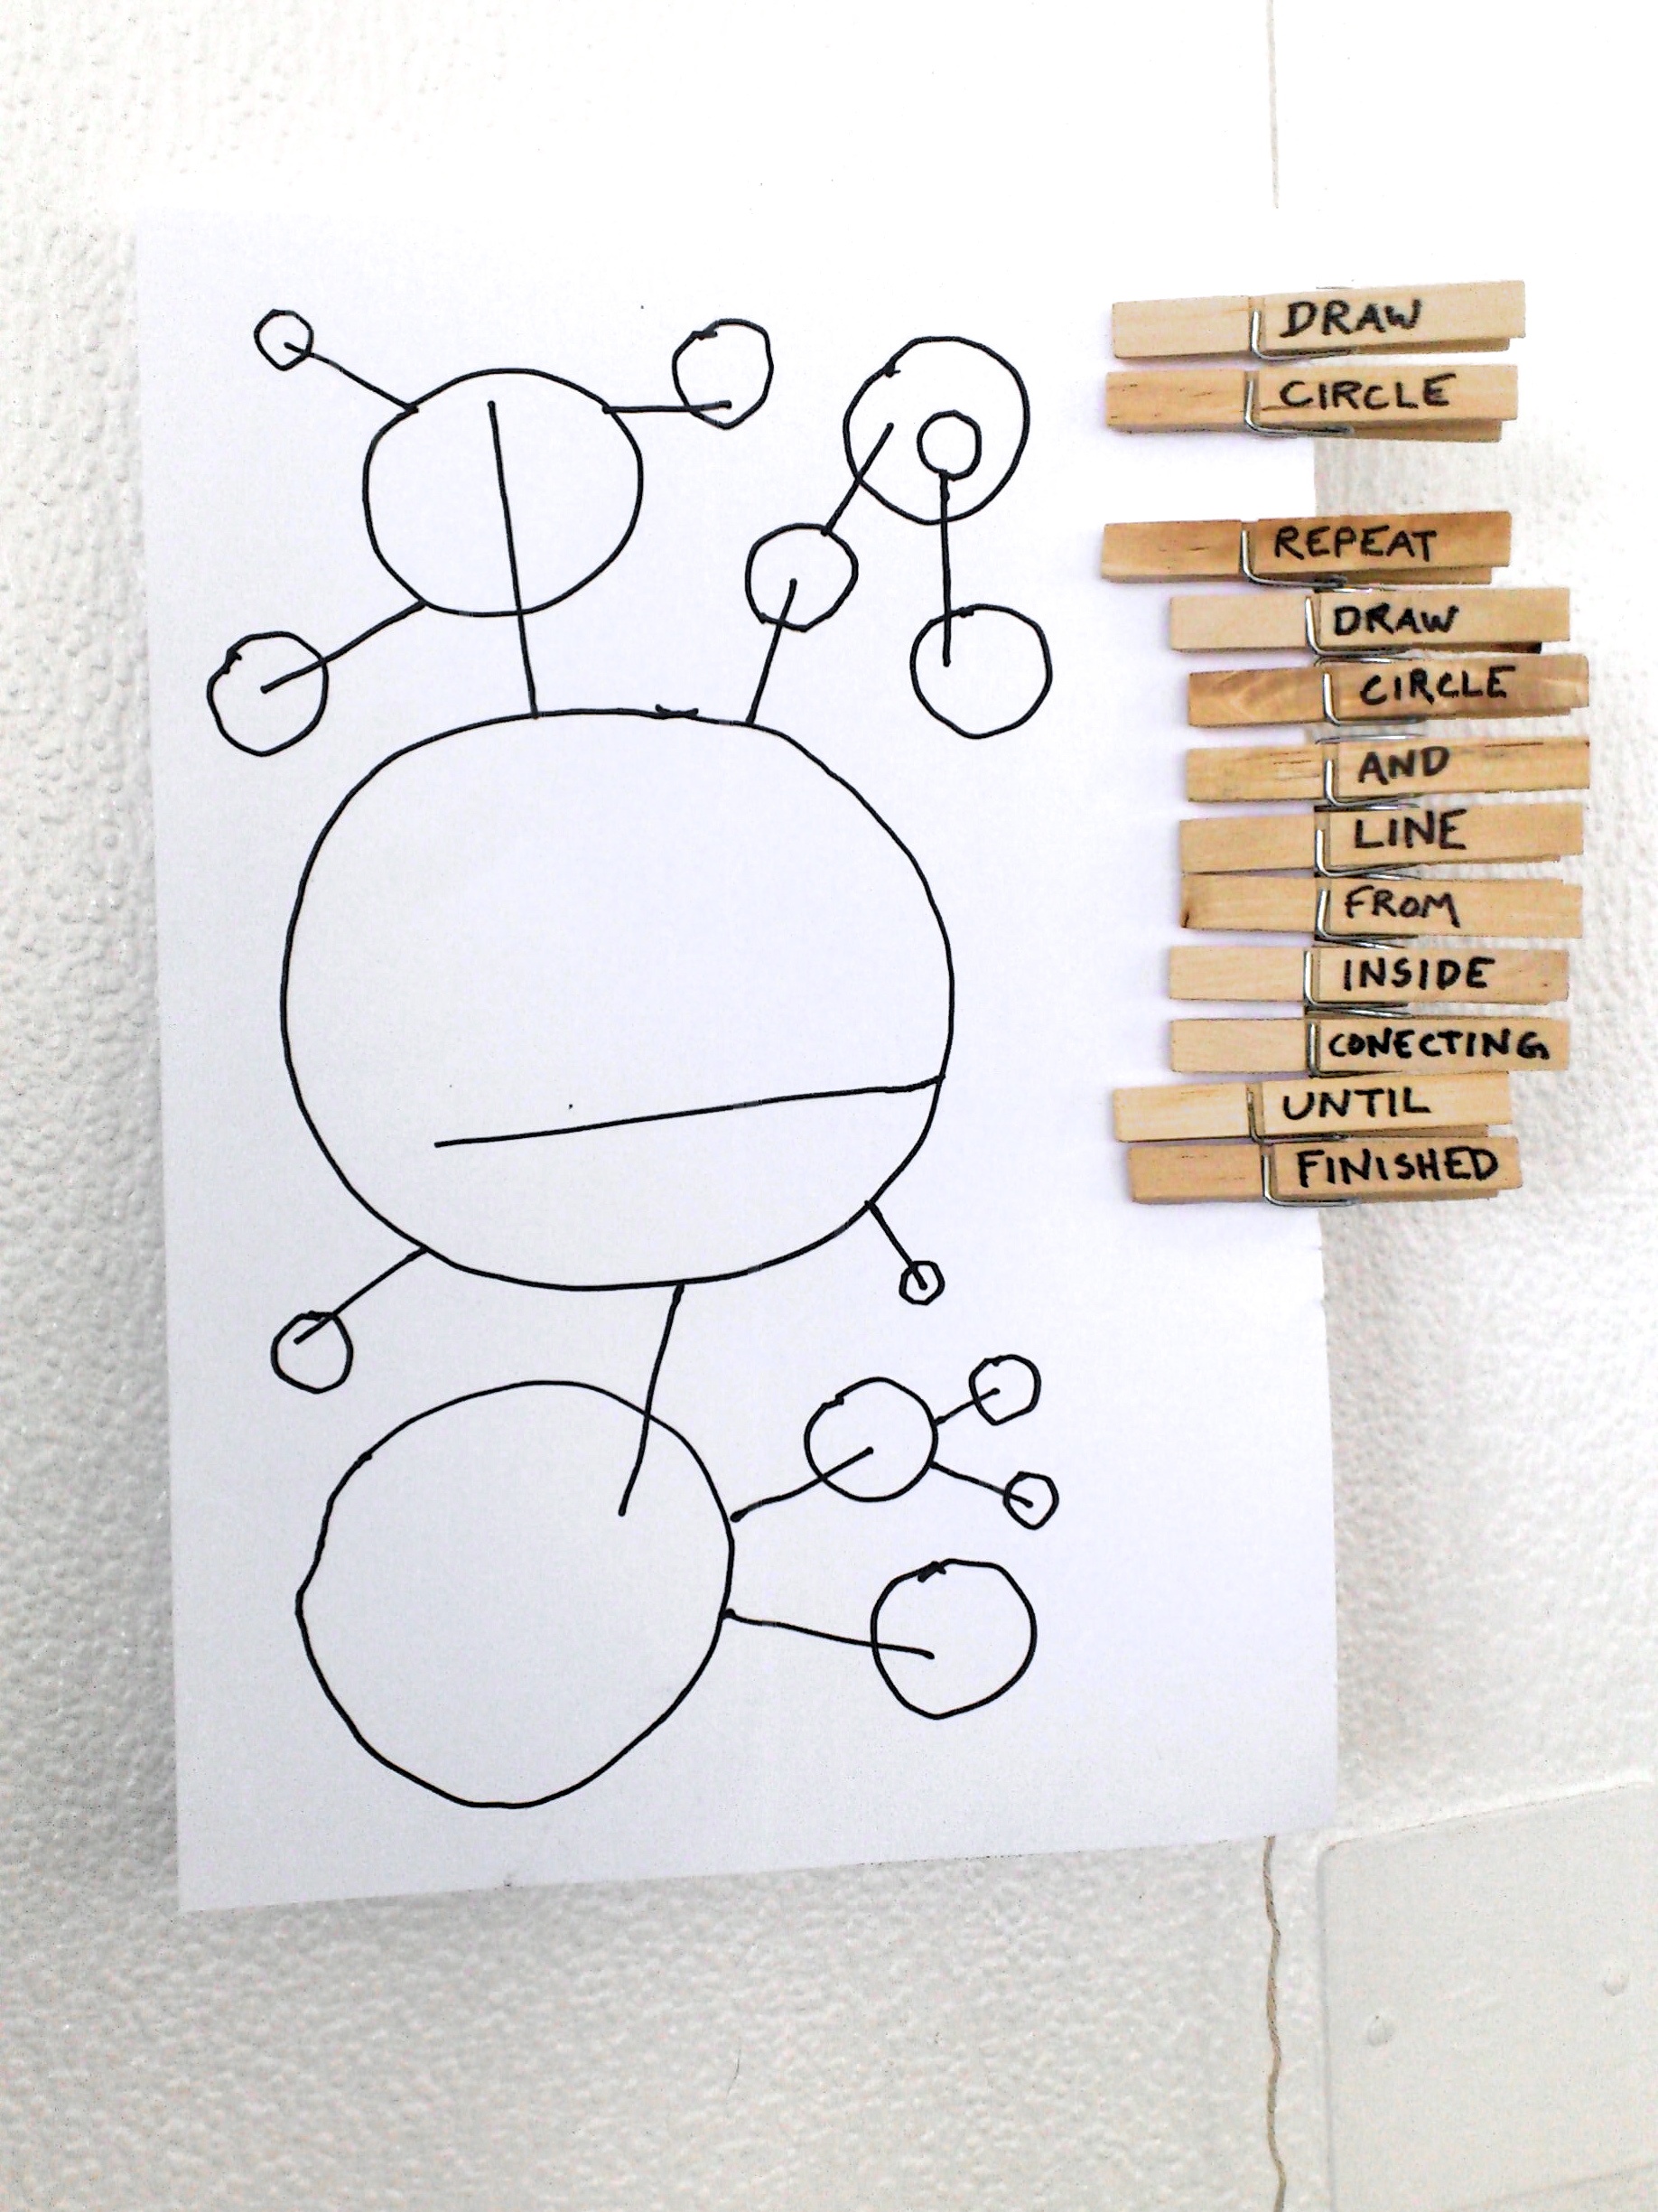 DRAW
CIRCLE
REPEAT
DRAW
CIRCLE
AND
LINE
FROM
INSIDE
CONECTING
UNTIL
FINISHED